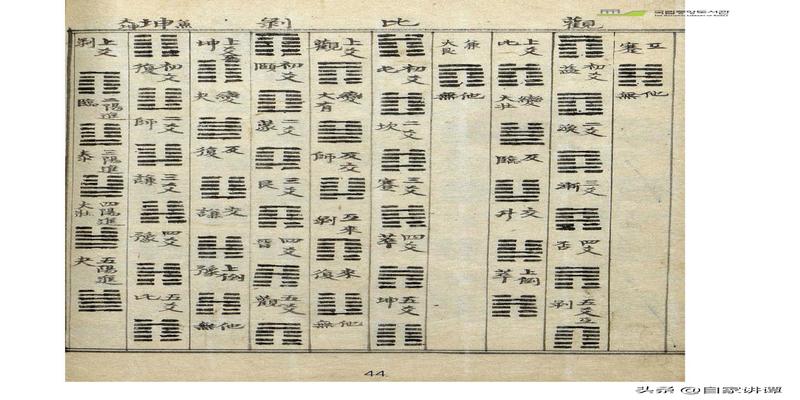 국립중앙도서관
THE NATIONAL LIBRARY OF KOREA
觀
比
剝
坤
互蹇
他無
初爻益
二爻渙
三爻漸
四爻否
五爻剝
上爻比
變大壯
反臨
交升
上倒萃
兼大艮
他無
初爻屯
二爻坎
三爻蹇
四爻萃
五爻坤
上爻觀
變大有
反交師
互來剝
來復
他無
初爻頤
二爻蒙
三爻艮
四爻晉
五爻觀
上爻坤
變夬
反復
交謙
上倒豫
他無
初爻復
二爻師
三爻謙
四爻豫
五爻比
上爻剝
二陽進臨
三陽進泰
四陽進大壯
五陽進夬
44
头条 @自家讲谭